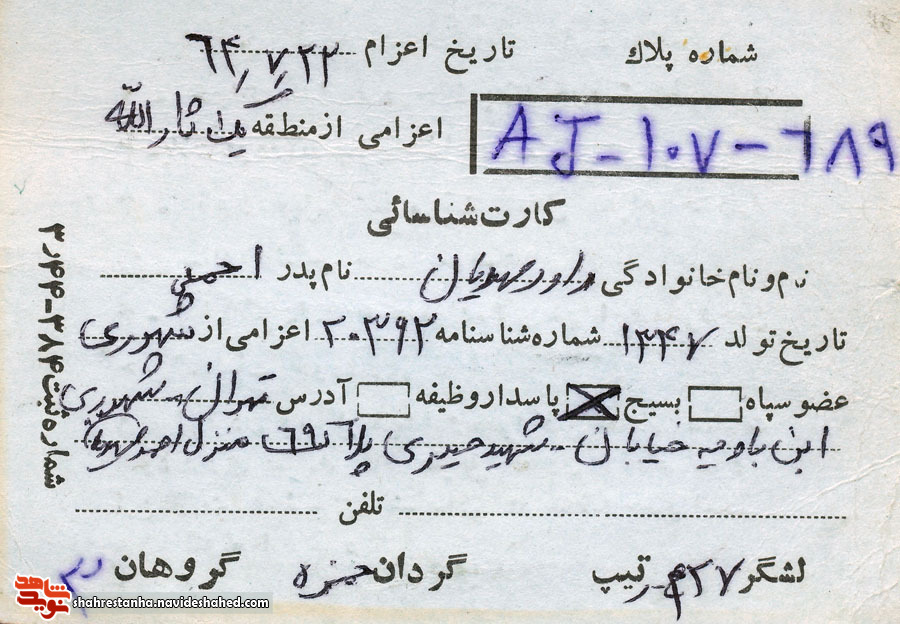 شماره پلاك تاریخ اعزام ۶۴٫۷٫۲۲
AJ-۱۰۷-۶۸۹
اعزامی از منطقه یك ثارالله
کارت شناسائی
نام و نام خانوادگی داود مهدیان نام پدر احمد
تاریخ تولد ۱۳۴۷ شماره شناسنامه ۲۰۳۹۲ اعزامی از شهرری
عضو سپاه بسیج پاسدار وظیفه آدرس تهران - شهرری
ابن بابویه خیابان - شهید حیدری پلاک ۶۹ منزل احمد مهدیان
تلفن
لشگر ۲۷ تیپ گردان حمزه گروهان
شماره ثبت ۳۸۴-۳٫۴۴
نوید شاهد
shahrestanha.navideshahed.com